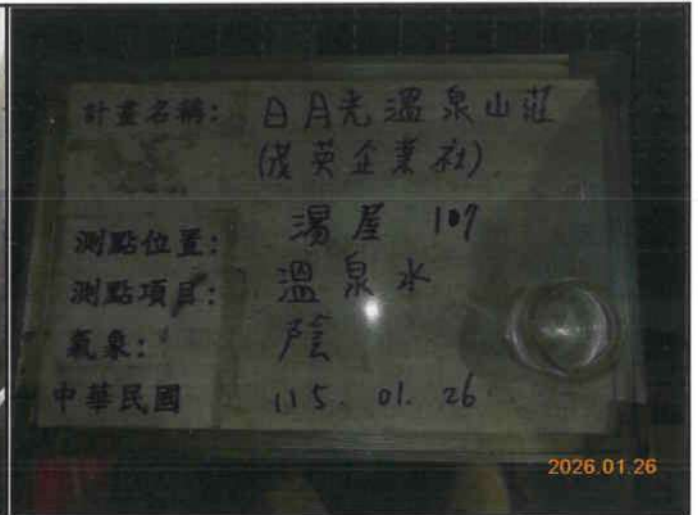 計畫名稱: 日月光溫泉山莊
(茂英企業社)
測點位置: 湯屋 107
測點項目: 溫泉水
氣象: 陰
中華民國 115. 01. 26
2026.01.26